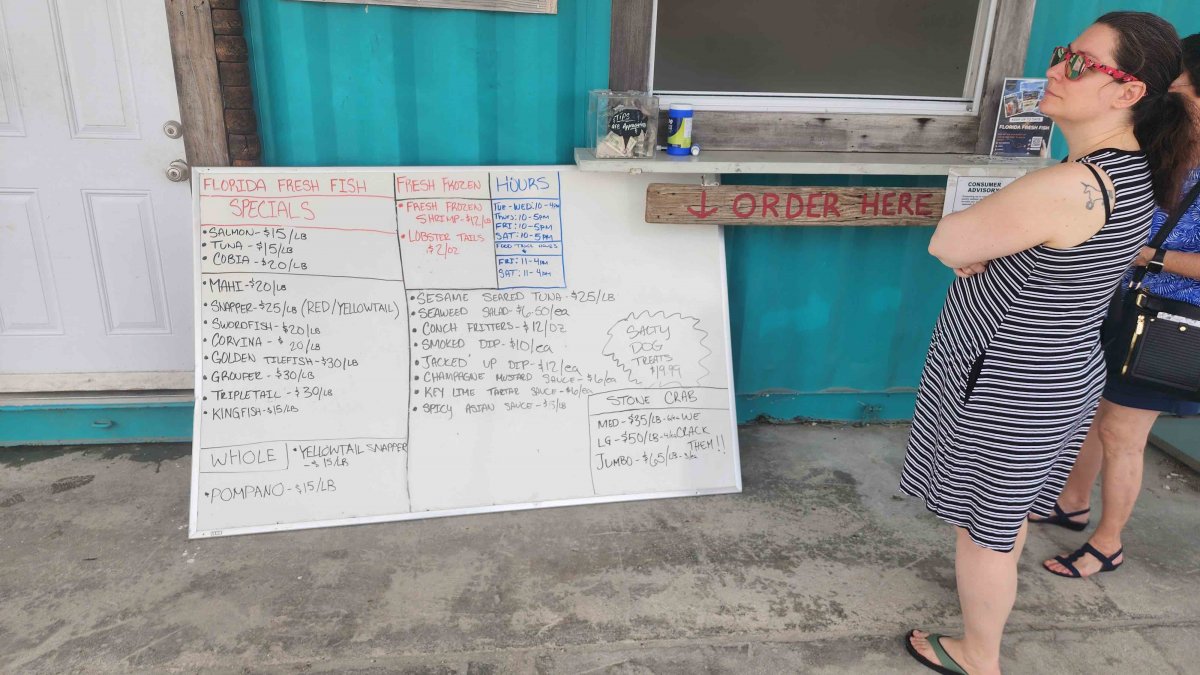 FLORIDA FRESH FISH
SPECIALS
• SALMON - $15/LB
• TUNA - $15/LB
• COBIA - $20/LB
• MAHI - $20/LB
• SNAPPER - $25/LB (RED/YELLOWTAIL)
• SWORDFISH - $20/LB
• CORVINA - $20/LB
• GOLDEN TILEFISH - $30/LB
• GROUPER - $30/LB
• TRIPLETAIL - $30/LB
• KINGFISH - $15/LB
WHOLE
• YELLOWTAIL SNAPPER
- $15/LB
• POMPANO - $15/LB
FRESH FROZEN
• FRESH FROZEN
SHRIMP - $12/LB
• LOBSTER TAILS
$2/OZ
HOURS
TUE - WED: 10 - 4PM
THURS: 10 - 5PM
FRI: 10 - 5PM
SAT: 10 - 5PM
FOOD TRUCK HOURS
FRI: 11 - 4PM
SAT: 11 - 4PM
• SESAME SEARED TUNA - $25/LB
• SEAWEED SALAD - $6.50/ea
• CONCH FRITTERS - $12/DZ
• SMOKED DIP - $10/ea
• JACKED UP DIP - $12/ea
• CHAMPAGNE MUSTARD SAUCE - $6/ea
• KEY LIME TARTAR SAUCE - $6/ea
• SPICY ASIAN SAUCE -
SALTY
DOG
TREATS
$9.99
STONE CRAB
MED - $35/LB WE
LG - $50/LB CRACK
JUMBO - $65/LB THEM!!
TIPS
are Appreciated
↓ ORDER HERE
FLORIDA FRESH FISH
CONSUMER
ADVISORY